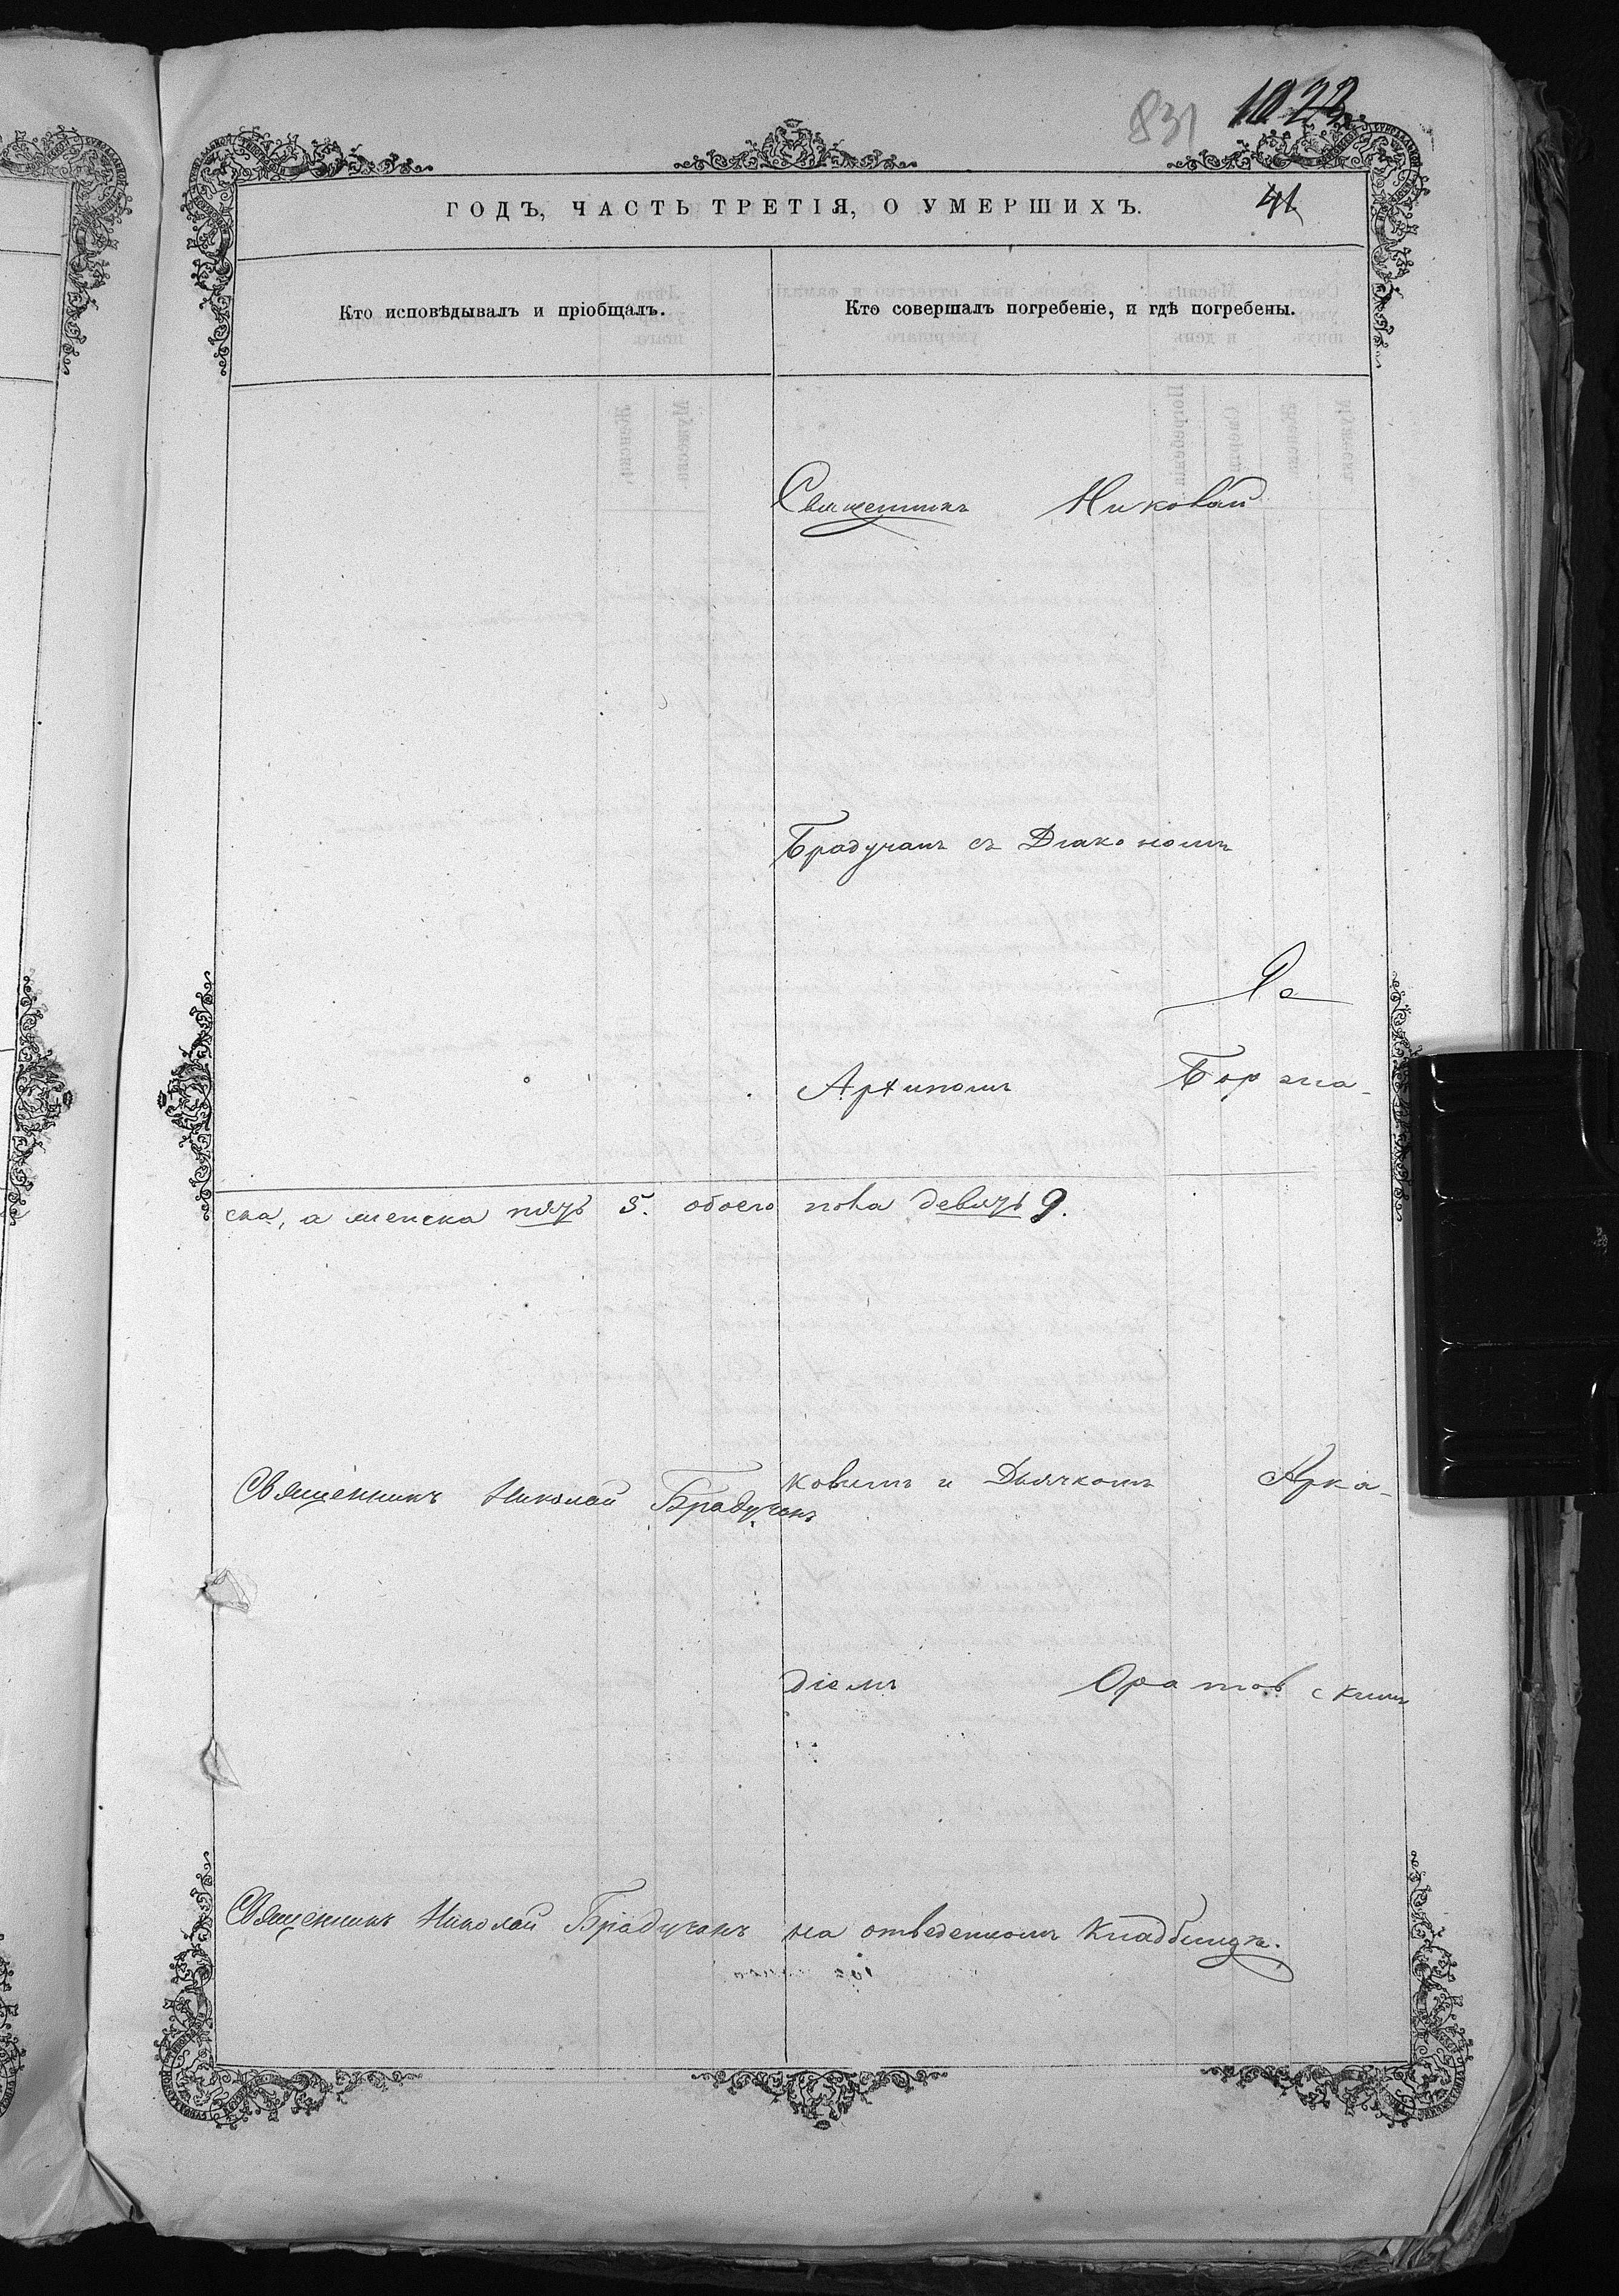 831 1022
ГОДЪ, ЧАСТЬ ТРЕТІЯ, О УМЕРШИХЪ. 41
Кто исповѣдывалъ и пріобщалъ.
Кто совершалъ погребеніе, и гдѣ погребены.
Священникъ Николай
Брадучанъ съ Діакономъ
Борзна-
ска, а женска пять 5. обоего пола девять 9.
Священникъ Николай Брадучанъ
ковимъ и Дьячкомъ Арка-
діемъ Оратовскимъ
Священникъ Николай Брадучанъ
на отведенномъ кладбищѣ.